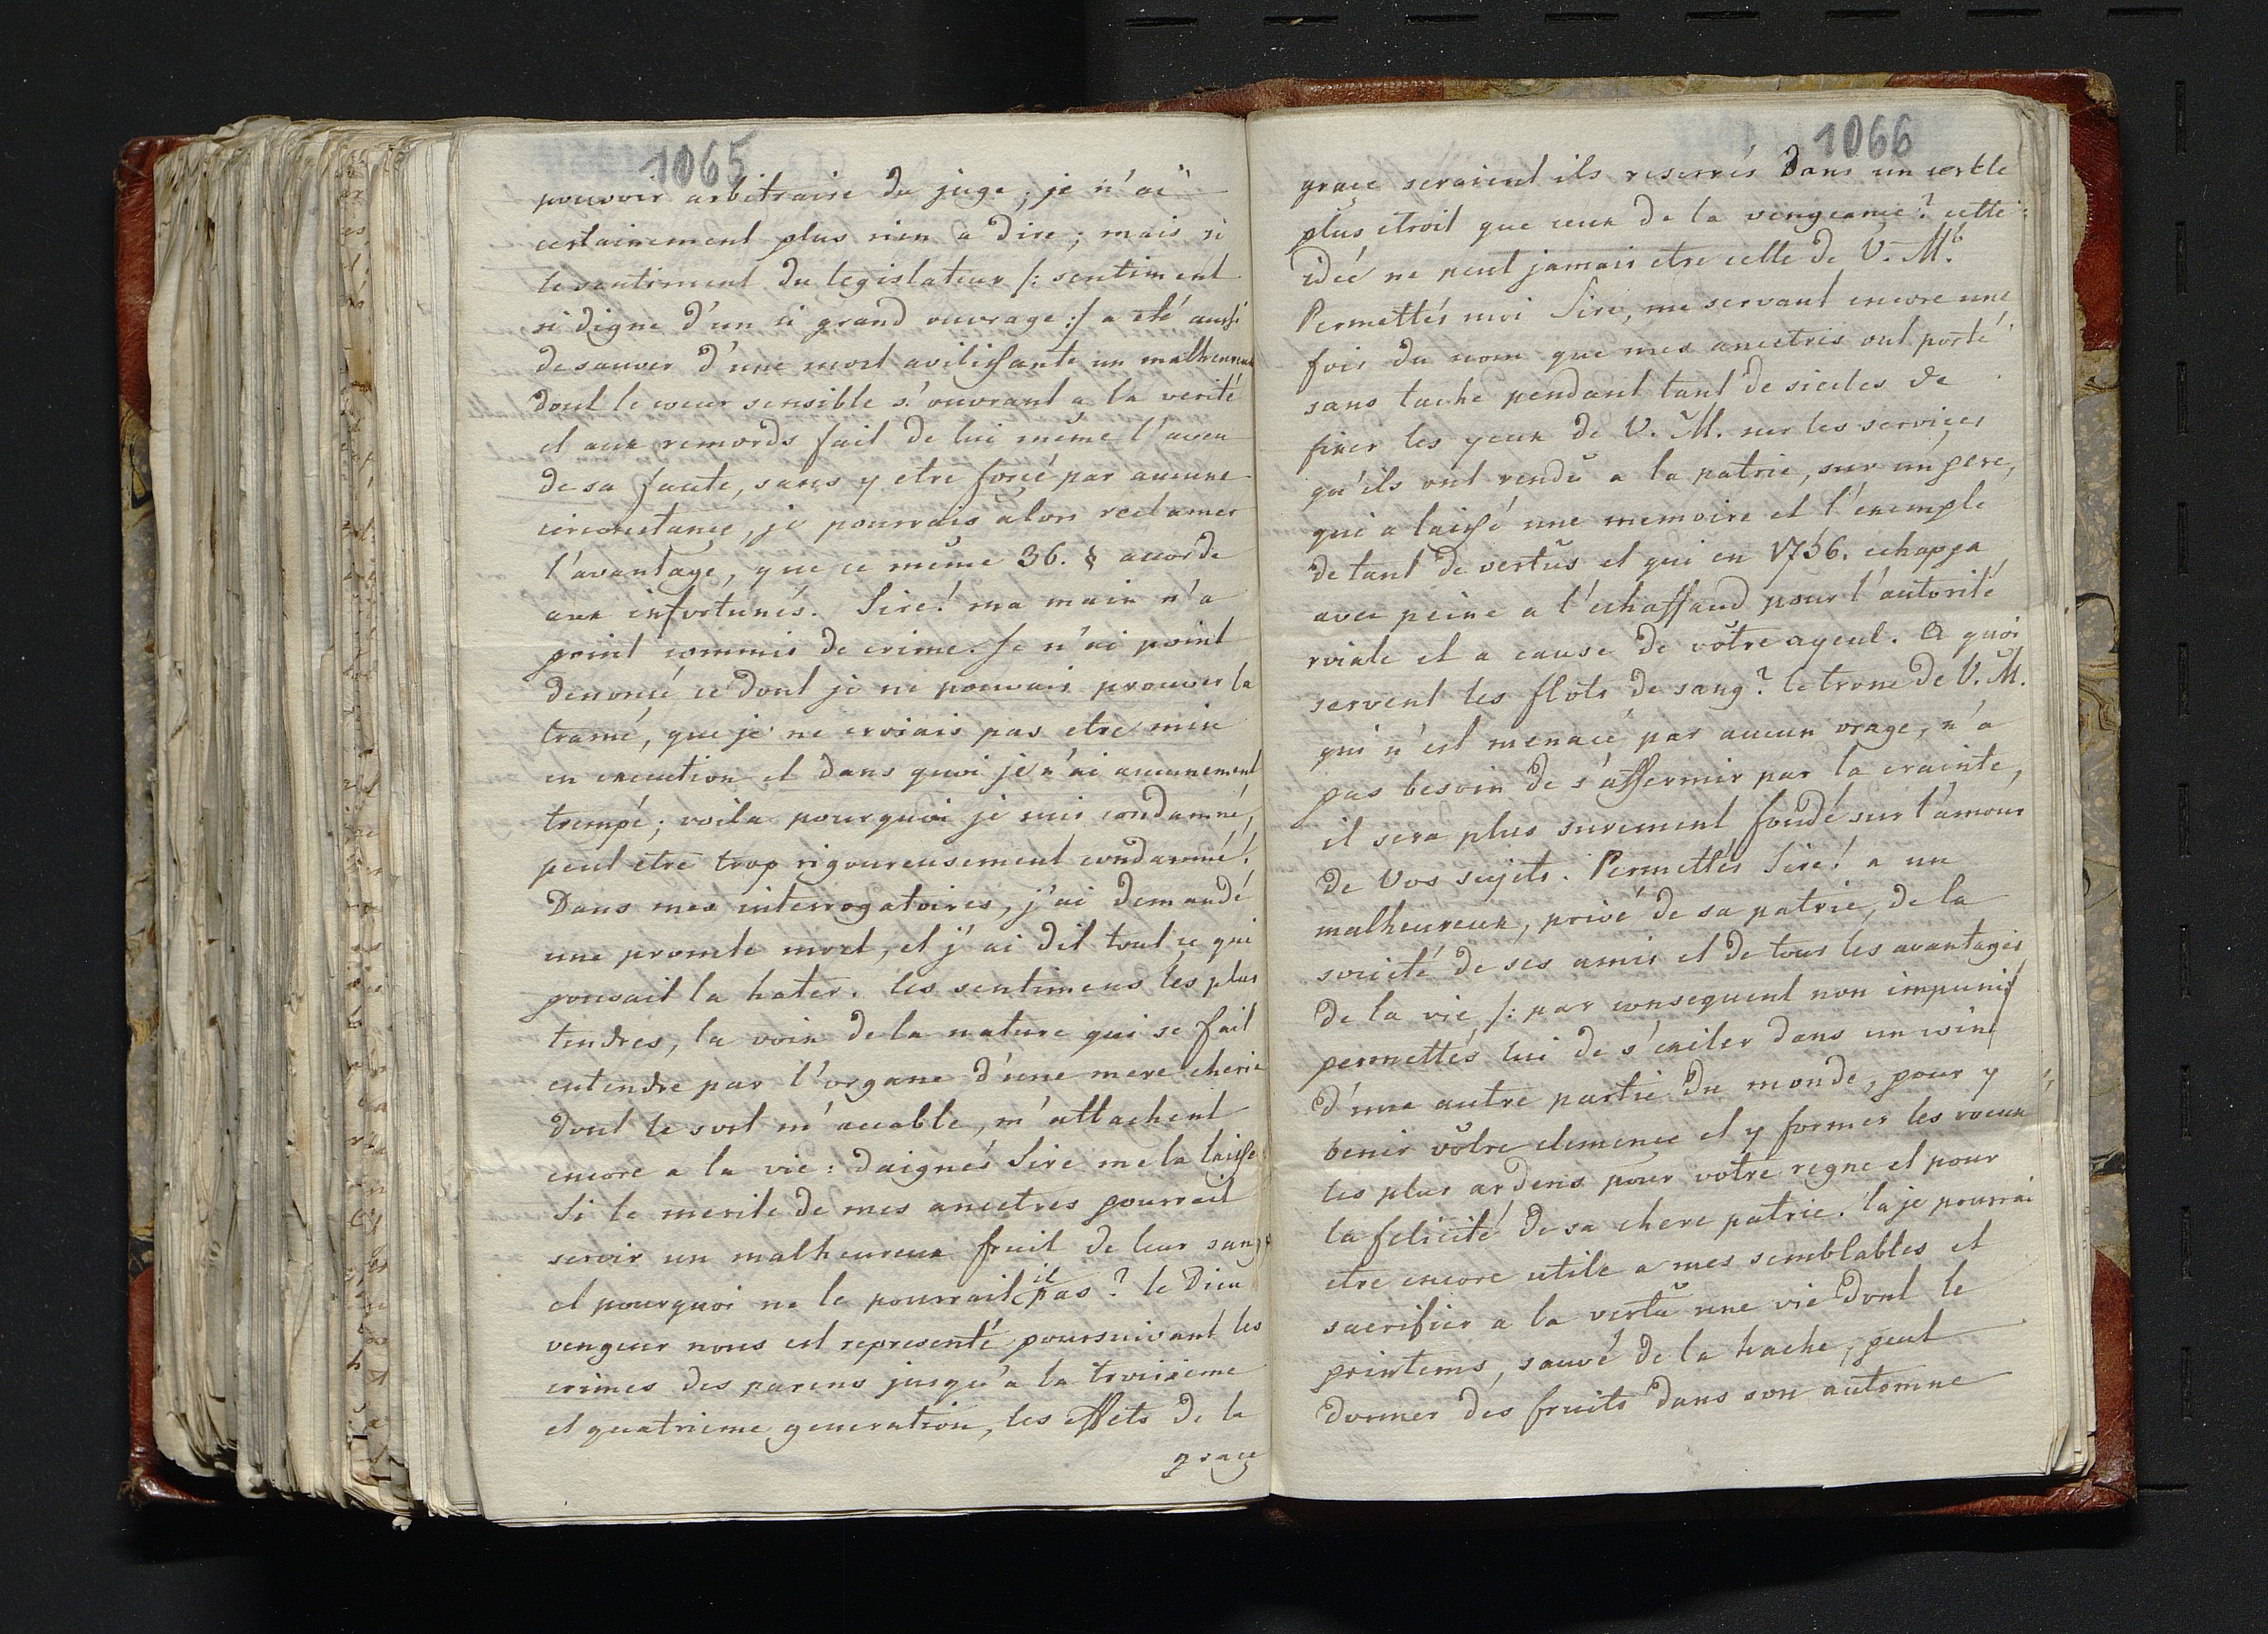 1065
pouvoir arbitraire du juge; je n'ai
certainement plus rien a dire; mais si
le sentiment du legislateur /: sentiment
si digne d'un si grand ouvrage :/ a eté aussi
de sauver d'une mort avilissante un malheureux
dont le coeur sensible s'ouvrant a la verité
et aux remords fait de lui même l'aveu
de sa faute, sans y etre forcé par aucune
circonstance, je pourrais alors reclamer
l'avantage, que ce même 36. § accorde
aux infortunés. Sire! ma main n'a
point commis de crime. Je n'ai point
denoncé ce dont je ne pouvais prouver la
tramé, que je ne croiais pas etre mise
en execution et dans quoi je n'ai aucunement
trempé; voila pourquoi je suis condamné,
peut etre trop rigoureusement condamné!
Dans mes interrogatoires, j'ai demandé
une promte mort, et j'ai dit tout ce qui
pouvait la hater. les sentimens les plus
tendres, la voix de la nature qui se fait
entendre par l'organe d'une mere cherie
dont le sort m'accable, m'attachent
encore a la vie: daignés Sire me la laisser
Si le merite de mes ancetres pourrait
servir un malheureux fruit de leur sang
et pourquoi ne le pourrait il pas? le Dieu
vengeur nous est representé poursuivant les
crimes des parens jusqu'a la troisieme
et quatrieme generation, les effets de la
grace
1066
grace seraient ils reserrés dans un cercle
plus etroit que ceux de la vengeance? cette
idée ne peut jamais etre celle de V. M.
Permettés moi Sire, me servant encore une
fois du nom que mes ancetres ont porté
sans tache pendant tant de siecles de
fixer les yeux de V. M. sur les services
qu'ils ont rendu a la patrie, sur un pere,
qui a laissé une memoire et l'exemple
de tant de vertus et qui en 1756. echappa
avec peine a l'echaffaud pour l'autorité
roiale et a cause de vôtre ayeul. A quoi
servent les flots de sang? le trone de V. M.
qui n'est menacé par aucun orage, n'a
pas besoin de s'affermir par la crainte,
il sera plus surement fondé sur l'amour
de Vos sujets. Permettés Sire! a un
malheureux, privé de sa patrie, de la
societé de ses amis et de tous les avantages
de la vie /: par consequent non impuni :/
permettés lui de s'exiler dans un coin
d'une autre partie du monde, pour y
benir vôtre clemence et y former les voeux
les plus ardens pour votre regne et pour
la felicité de sa chere patrie. la je pourrai
etre encore utile a mes semblables et
sacrifier a la vertu une vie dont le
printems, sauvé de la hache, peut
donner des fruits dans son automne